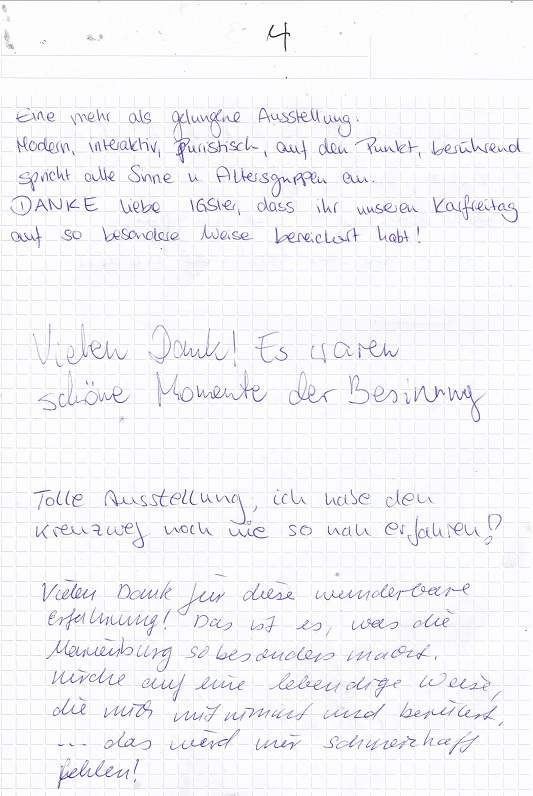 4
Eine mehr als gelungene Ausstellung.
Modern, interaktiv, puristisch, auf den Punkt, berührend
spricht alle Sinne u Altersgruppen an.
DANKE liebe IGSler, dass ihr unseren Karfreitag
auf so besondere Weise bereichert habt!
Vielen Dank! Es waren
schöne Momente der Besinnung
Tolle Ausstellung, ich habe den
Kreuzweg noch nie so nah erfahren!
Vielen Dank für diese wunderbare
Erfahrung! Das ist es, was die
Marienburg so besonders macht.
Kirche auf eine lebendige Weise,
die mich mitnimmt und berührt,
... das wird mir schmerzhaft
fehlen!